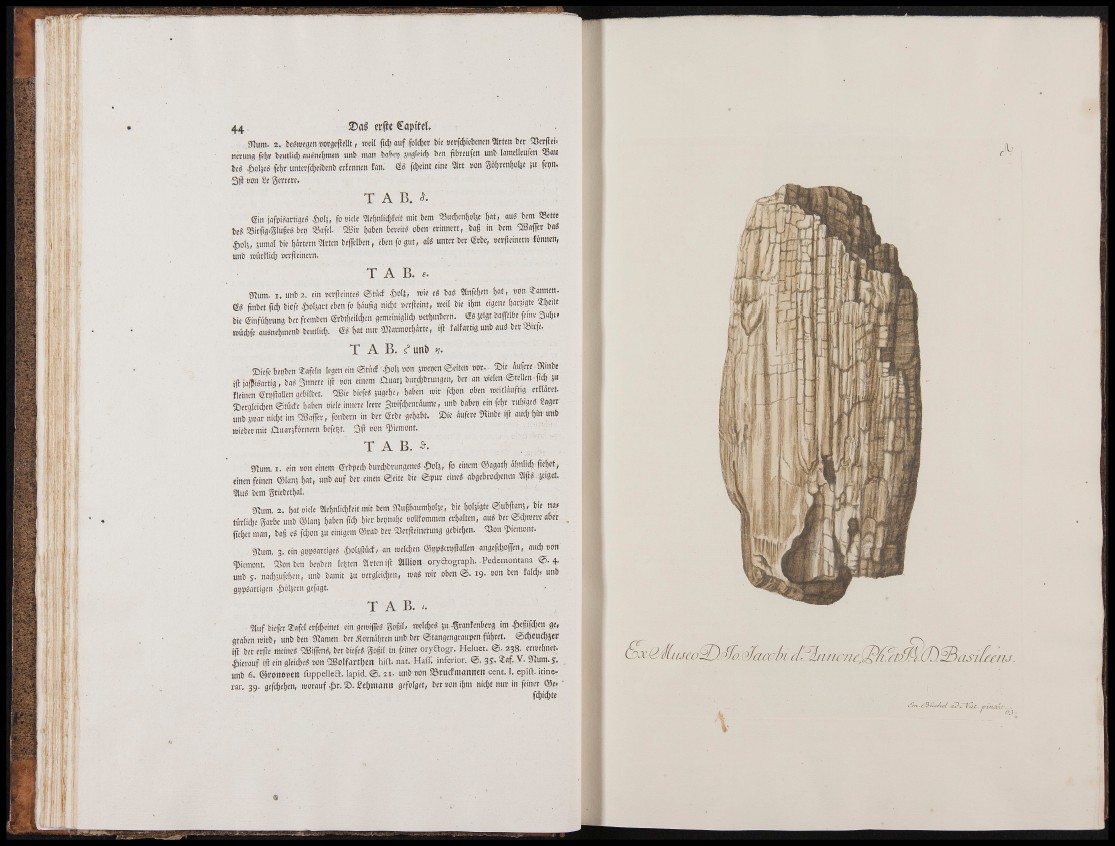 44 Das erste Capitel.
Num. 2. deswegen vorgestellt, weil sich auf solcher die verschiedenen Arten der Verstei-
nerung sehr deutlich ausnehmen und man dabey zugleich den fibreusen und lamelleusen Bau
des Holzes sehr unterscheidend erkennen kan. Es scheint eine Art von Föhrenholze zu seyn.
Ist von Le Ferrere.
T A B. δ.
Ein jaspisartiges Holz, so viele Aehnlichkeit mit dem Buchenholze hat, aus dem Bette
des Birsig-Flußes bey Basel. Wir haben bereits oben erinnert, daß in dem Wasser das
Holz, zumal die härtern Arten desselben, eben so gut, als unter der Erde, versteinern können,
und würklich versteinern.
T A B. ε.
Num. 1. und 2. ein versteintes Stück Holz, wie es das Ansehen hat, von Tannen.
Es findet sich diese Holzart eben so häufig nicht versteint, weil die ihm eigene harzigte Theile
die Einführung der fremden Erdtheilchen gemeiniglich verhindern. Es zeigt dasselbe seine Jahr-
wüchse ausnehmend deutlich. Es hat nur Marmorhärte, ist kalkartig und aus der Birse.
T A B. ζ und η.
Diese beyden Tafeln legen ein Stück Holz von zweyen Seiten vor. Die äusere Rinde
ist jaspisartig, das Innere ist von einem Quarz durchdrungen, der an vielen Stellen sich zu
kleinen Crystallen gebildet. Wie dieses zugehe, haben wir schon oben weitläuftig erkläret.
Dergleichen Stücke haben viele innere leere Zwischenräume, und dabey ein sehr ruhiges Lager
und zwar nicht im Wasser, sondern in der Erde gehabt. Die äusere Rinde ist auch hin und
wieder mit Quarzkörnern besetzt. Ist von Piemont.
T A B. ϑ.
Num. 1. ein von einem Erdpech durchdrungenes Holz, so einem Gagath ähnlich siehet,
einen feinen Glanz hat, und auf der einen Seite die Spur eines abgebrochenen Asts zeiget.
Aus dem Friedethal.
Num. 2. hat viele Aehnlichkeit mit dem Nußbaumholze, die holzigte Substanz, die na-
türliche Farbe und Glanz haben sich hier beynahe vollkommen erhalten, aus der Schwere aber
siehet man, daß es schon zu einigem Grad der Versteinerung gediehen. Von Piemont.
Num. 3. ein gypsartiges Holzstück, an welchen Gypscrystallen angeschossen, auch von
Piemont. Von den beyden letzten Arten ist Allion oryctograph. Pedemontana S. 4.
und 5. nachzusehen, und damit zu vergleichen, was wir oben S. 19. von den kalch- und
gypsartigen Hölzern gesagt.
T A B. ι.
Auf dieser Tafel erscheinet ein gewisses Foßil, welches zu Frankenberg im Heßischen ge-
graben wird, und den Namen der Kornähren und der Stangengraupen führet. Scheuchzer
ist der erste meines Wissens, der dieses Foßil in seiner oryctogr. Heluet. S. 238. erwehnet.
Hierauf ist ein gleiches von Wolfarthen hist. nat. Hass. inferior. S. 35. Taf. V. Num. 5.
und 6. Gronoven suppellect. lapid. S. 21. und von Bruckmannen cent. I. epist. itine-
rar. 39. geschehen, worauf Hr. D. Lehmann gefolget, der von ihm nicht nur in seiner Ge-
schichte
Ex Museo D. Jo. Jacobi d'Annone, Ph. et J. V. D. Basileens.
Em. Büchel ad Nat. pinxit